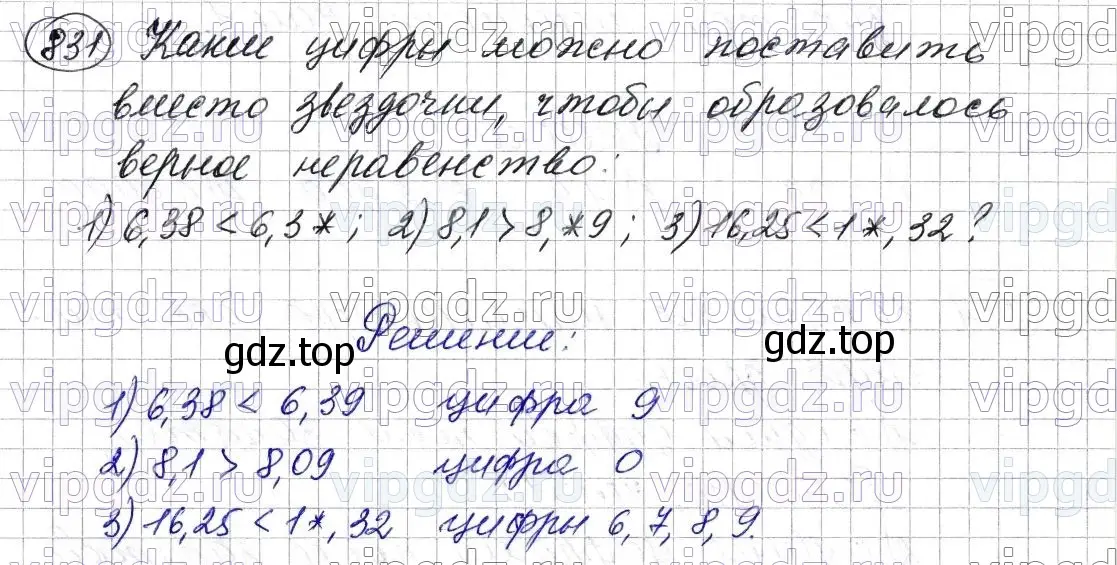 831 Какие цифры можно поставить
вместо звездочки, чтобы образовалось
верное неравенство:
1) 6,38 < 6,3*; 2) 8,1 > 8,*9; 3) 16,25 < 1*,32?
Решение:
gdz.top gdz.top
1) 6,38 < 6,39 цифра 9
2) 8,1 > 8,09 цифра 0
3) 16,25 < 1*,32 цифры 6, 7, 8, 9.
vipgdz.ru